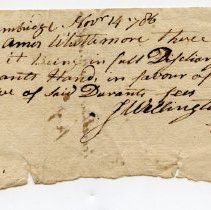 Cambridge Novr 14 1786
Amos Whittemore three
it being in full
ants Hand, in favour of
of said Durants fees
J Wellington